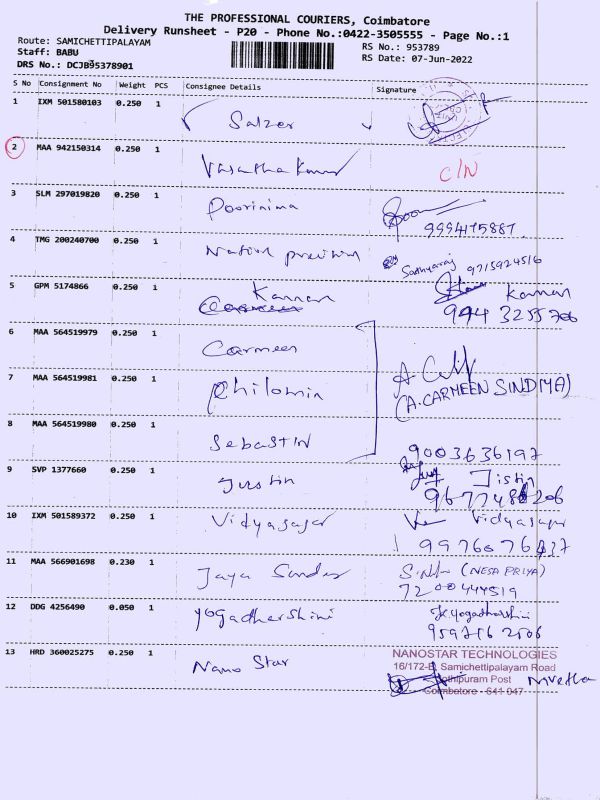 THE PROFESSIONAL COURIERS, Coimbatore
Delivery Runsheet - P20 - Phone No.:0422-3505555 - Page No.:1
Route: SAMICHETTIPALAYAM
Staff: BABU
DRS No.: DCJB95378901
RS No.: 953789
RS Date: 07-Jun-2022
S No Consignment No Weight PCS Consignee Details Signature
1 IXM 501580103 0.250 1 Salzer
2 MAA 942150314 0.250 1 Vasantha Kumar C/N
3 SLM 297019820 0.250 1 Poorinima
9994175887
4 TMG 200240700 0.250 1 Nation Sathyaraj 9715924516
5 GPM 5174866 0.250 1 Kannan Kannan
Carmeen 994 3255706
6 MAA 564519979 0.250 1 Carmeen
7 MAA 564519981 0.250 1 Philomin
(A. CARMEEN SINDIYA)
8 MAA 564519980 0.250 1 Sebastin 9003636197
9 SVP 1377660 0.250 1 Justin Jistin
10 IXM 501589372 0.250 1 Vidyasagar Vidyasagar
11 MAA 566901698 0.230 1 Jaya Sundar (NESA PRIYA)
7200444519
12 DDG 4256490 0.050 1 Yogadharshini Yogadharshini
13 HRD 360025275 0.250 1 Nano Star
NANOSTAR TECHNOLOGIES
16/172-E, Samichettipalayam Road
Jothipuram Post
Coimbatore - 641 047